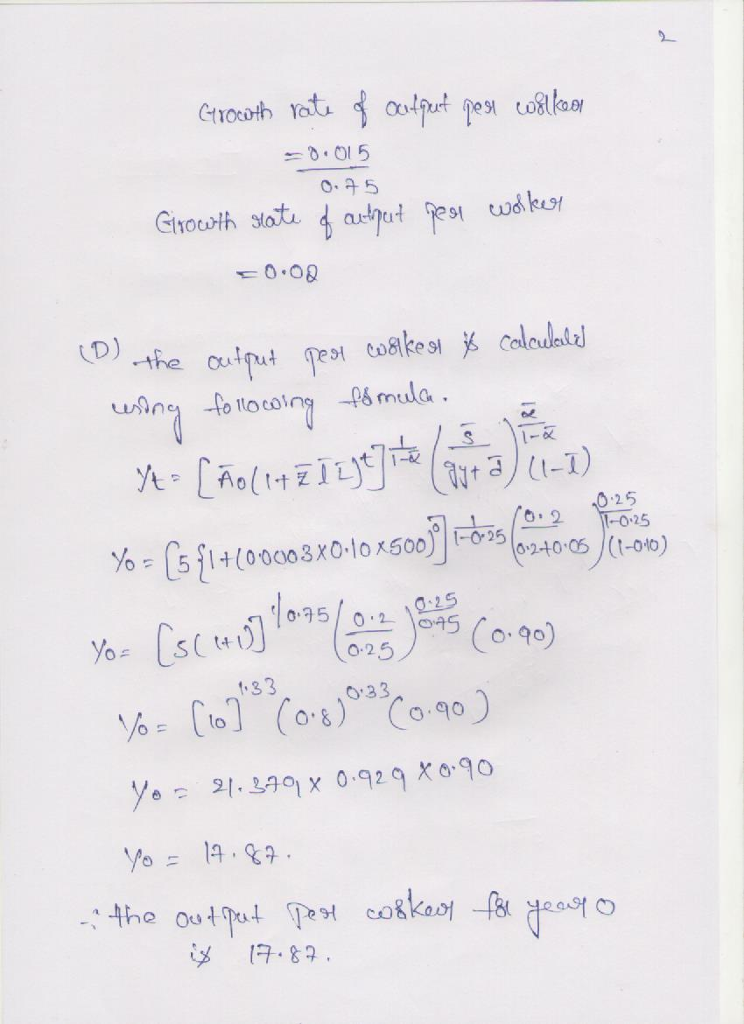 2
Growth rate of output per worker
= 0.015
0.75
Growth rate of output per worker
= 0.02
(D) the output per worker is calculated
using following formula.
Yt = [Ā0(1+z̄ l̄ L̄)^t]^(1/(1-ᾱ)) (s̄/(gy+d̄))^(ᾱ/(1-ᾱ)) (1-l̄)
Y0 = [5{1+(0.0003X0.10X500)^0]^(1/(1-0.25)) (0.2/(0.2+0.05))^(0.25/(1-0.25)) (1-0.10)
Y0 = [5(1+1)]^(1/0.75) (0.2/0.25)^(0.25/0.75) (0.90)
Y0 = [10]^1.33 (0.8)^0.33 (0.90)
Y0 = 21.379 X 0.929 X 0.90
Y0 = 17.87.
∴ the output per worker for year 0
is 17.87.